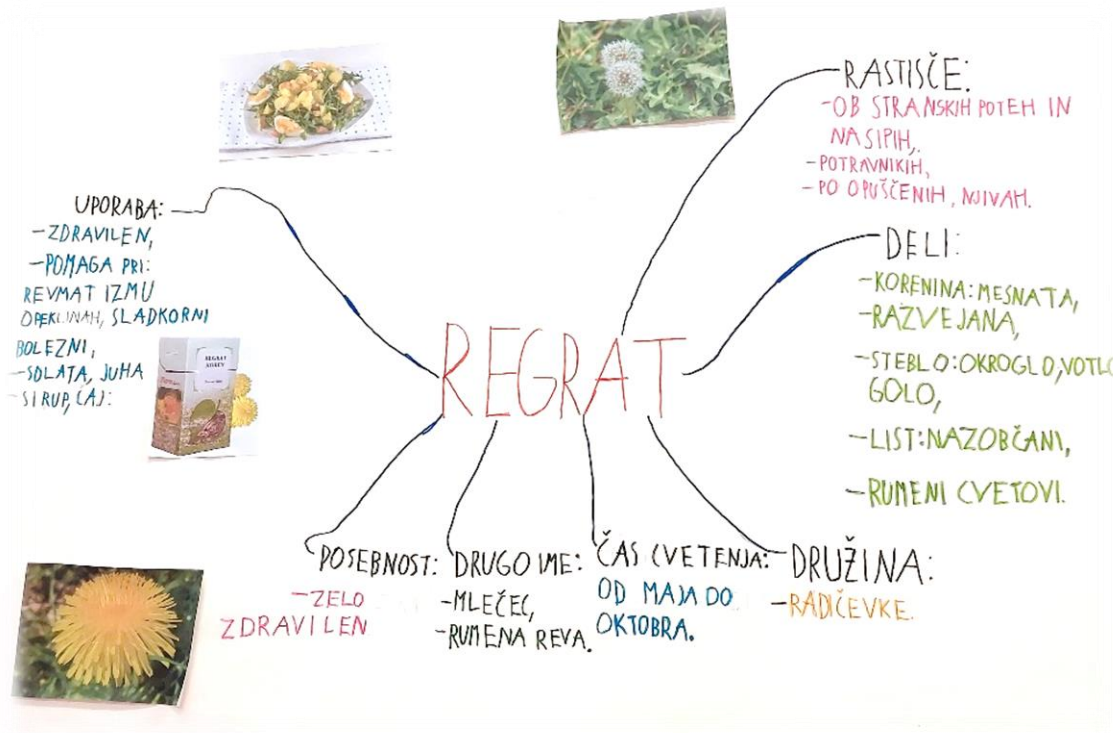 REGRAT
RASTIŠČE:
-OB STRANSKIH POTEH IN
NASIPIH,
-POTRAVNIKIH,
-PO OPUŠČENIH, NJIVAH.
DELI:
-KORENINA: MESNATA,
-RAZVEJANA,
-STEBLO: OKROGLO, VOTLO
GOLO,
-LIST: NAZOBČANI,
-RUMENI CVETOVI.
DRUŽINA:
-RADIČEVKE.
ČAS CVETENJA:
OD MAJA DO
OKTOBRA.
DRUGO IME:
-MLEČEC,
-RUMENA REVA.
POSEBNOST:
-ZELO
ZDRAVILEN
UPORABA:
-ZDRAVILEN,
-POMAGA PRI:
REVMATIZMU
OPEKLINAH, SLADKORNI
BOLEZNI,
-SOLATA, JUHA
-SIRUP, ČAJ:
REGRAT